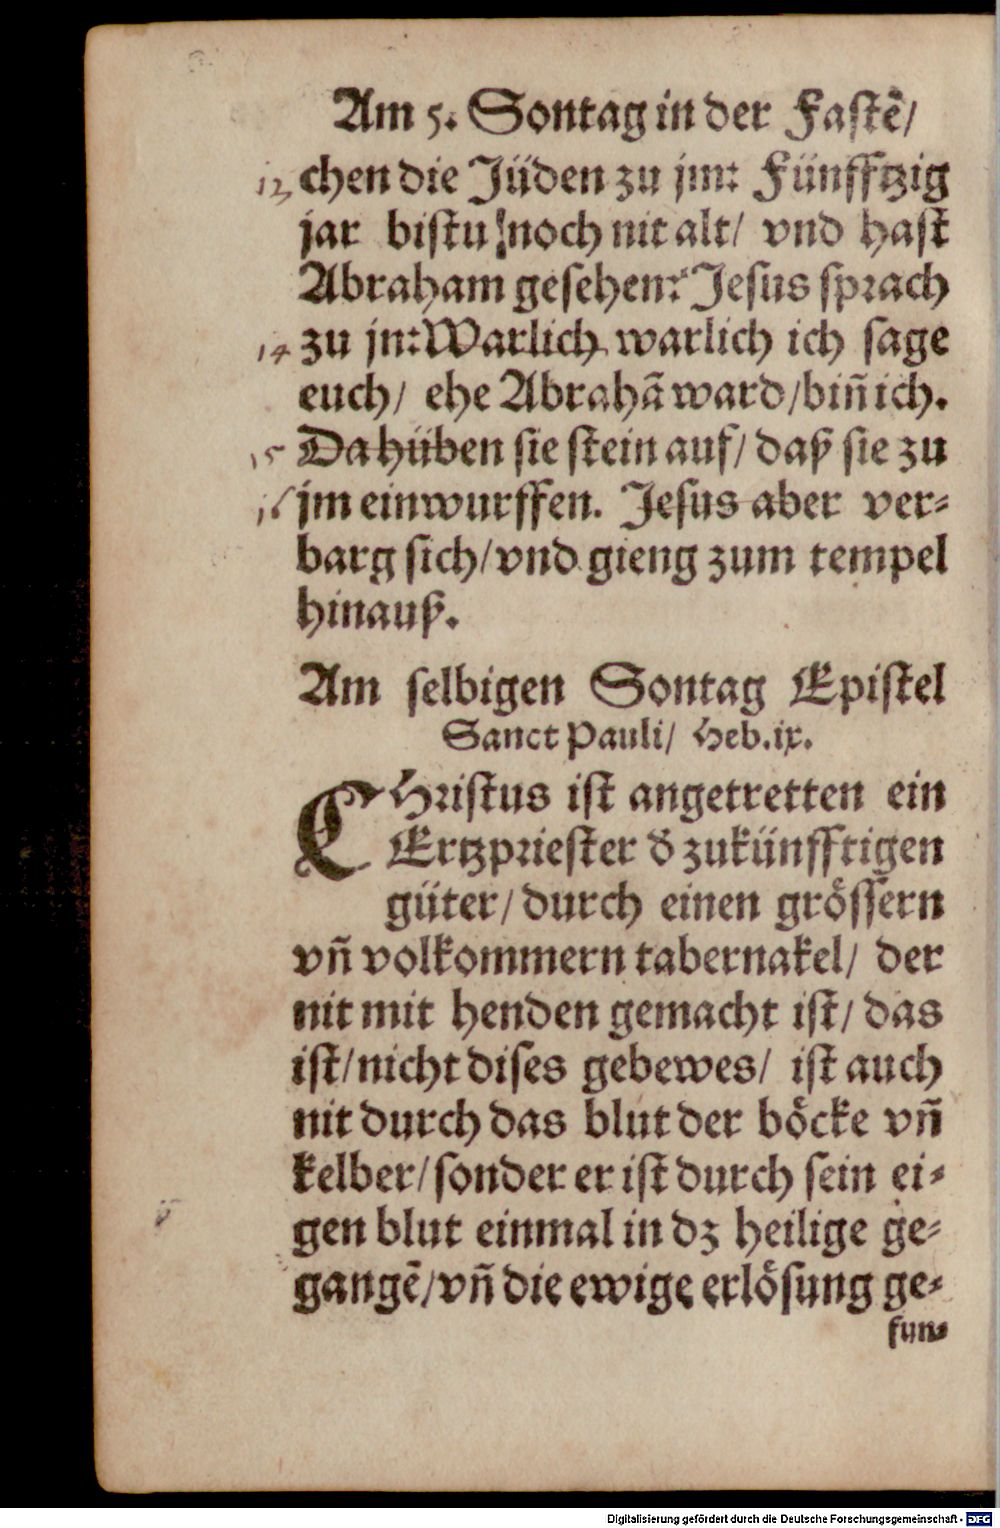 Am 5. Sontag in der Fastẽ/
13 chen die Jüden zu jm: Fünfftzig
jar bistu noch nit alt/ vnd hast
Abraham gesehen: Jesus sprach
14 zu jn: Warlich warlich ich sage
euch/ ehe Abrahã ward/ biñ ich.
15 Da hüben sie stein auf/ daß sie zu
16 jm einwurffen. Jesus aber ver-
barg sich/ vnd gieng zum tempel
hinauß.
Am selbigen Sontag Epistel
Sanct Pauli/ Heb. ix.
CHristus ist angetretten ein
Ertzpriester d̾ zukünfftigen
güter/ durch einen grössern
vñ volkommern tabernakel/ der
nit mit henden gemacht ist/ das
ist/ nicht dises gebewes/ ist auch
nit durch das blut der böcke vñ
kelber/ sonder er ist durch sein ei-
gen blut einmal in dz heilige ge-
gangẽ/ vñ die ewige erlösung ge-
fun-
Digitalisierung gefördert durch die Deutsche Forschungsgemeinschaft - DFG